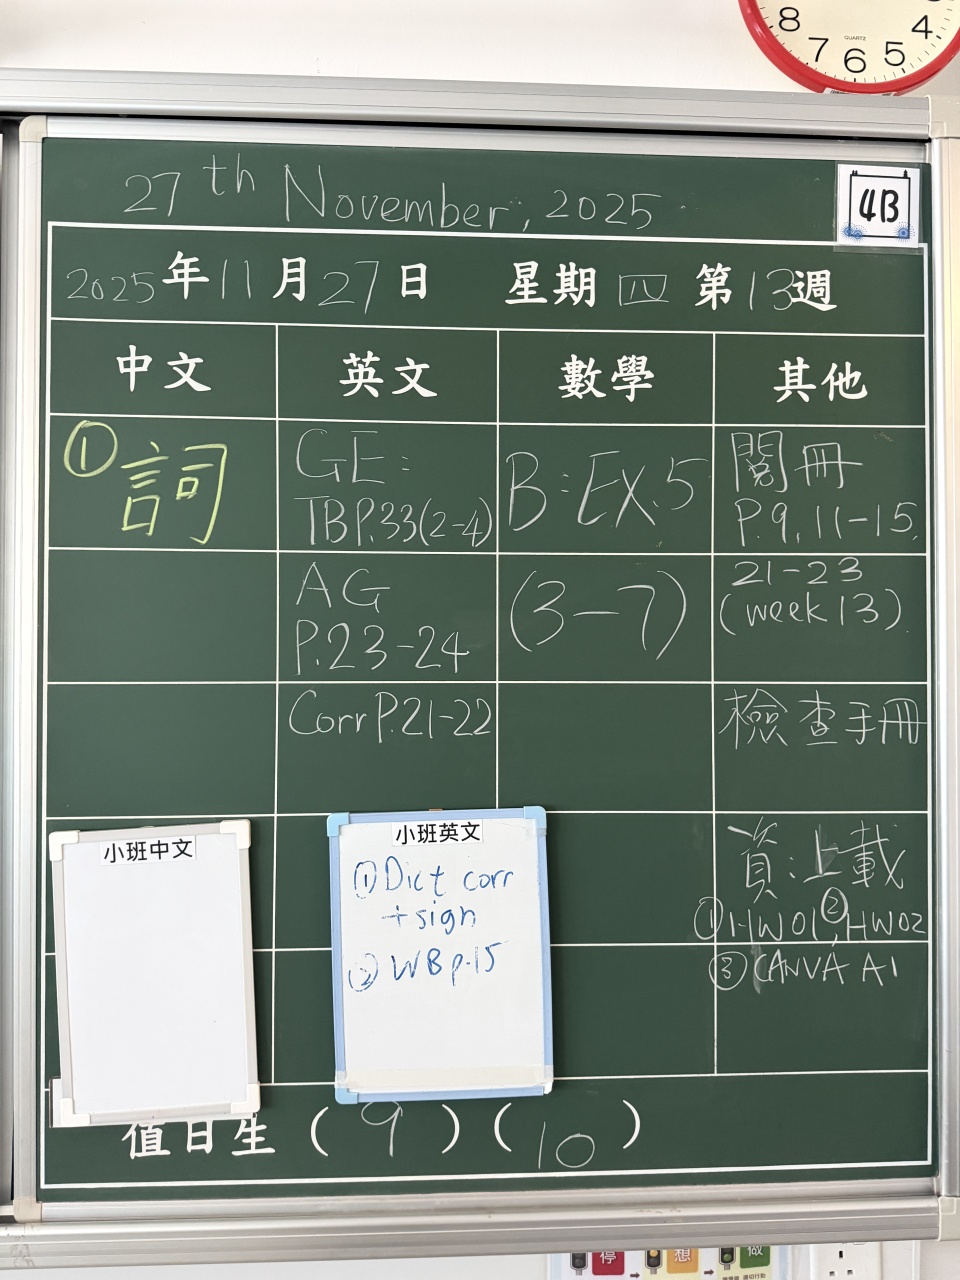 8 7 6 5 4
QUARTZ
27th November, 2025
4B
2025年11月27日 星期四 第13週
中文 英文 數學 其他
① 詞
GE:
TBP.33(2-4)
AG
P.23-24
Corr P.21-22
B:EX.5
(3-7)
閱冊
P.9, 11-15,
21-23
(week 13)
檢查手冊
資:上載
①HW01, ②HW02
③CANVA AI
小班中文
小班英文
①Dict corr
+sign
②WB p.15
值日生 (9) (10)
停 想 做